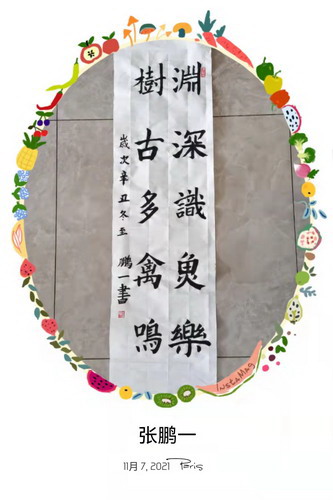 淵深識魚樂
樹古多禽鳴
歲次辛丑冬至
鵬一書
InstaMag
张鹏一
11月 7, 2021 Paris